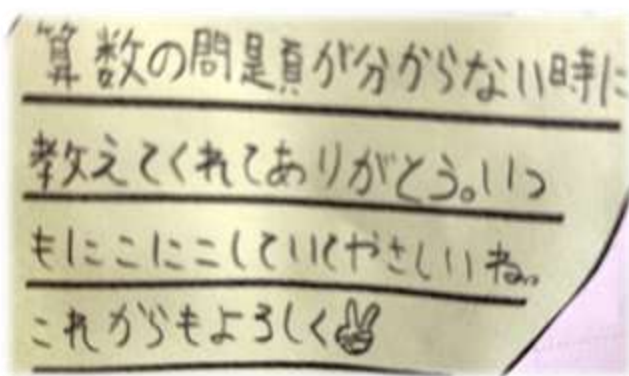 算数の問題が分からない時に
教えてくれてありがとう。いつ
もにこにこしていてやさしいね。
これからもよろしく✌